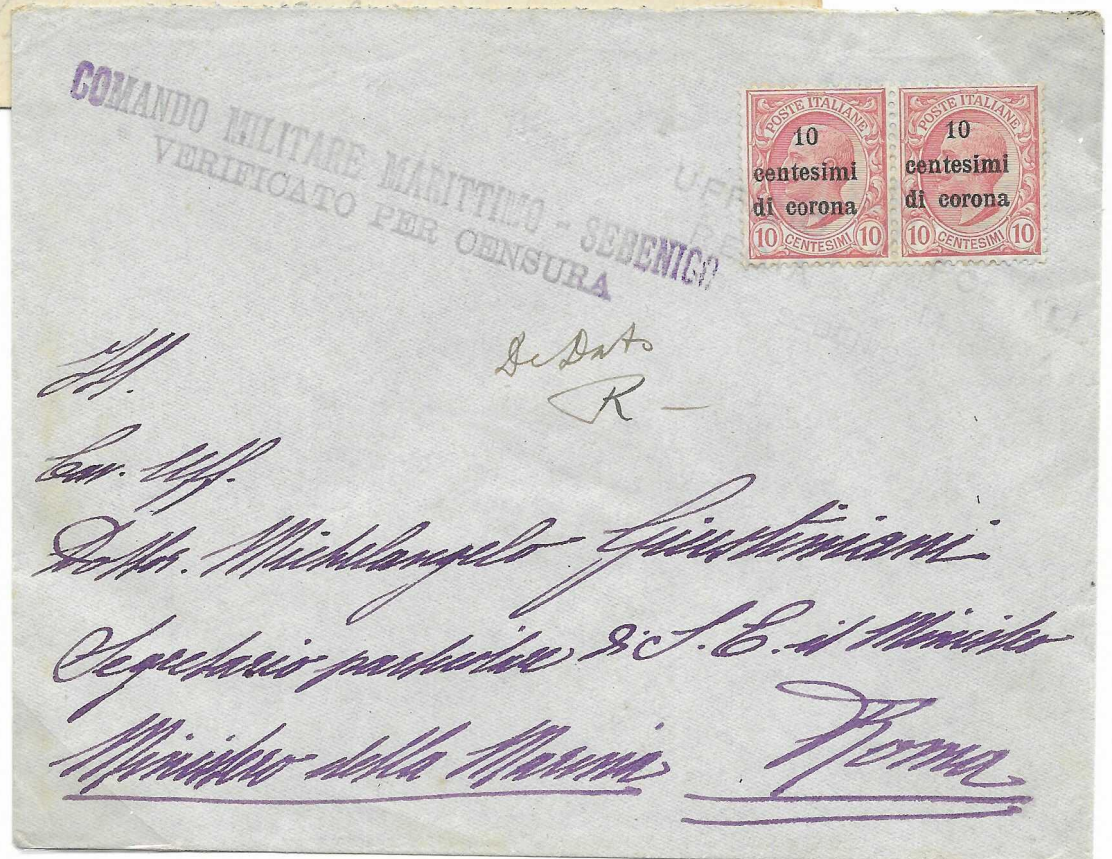 COMANDO MILITARE MARITTIMO - SEBENICO
VERIFICATO PER CENSURA
POSTE ITALIANE
10
centesimi
di corona
10 CENTESIMI 10
POSTE ITALIANE
10
centesimi
di corona
10 CENTESIMI 10
UFF
De Dato
R -
Ill.
Cav. Uff.
Dottor. Michelangelo Giustiniani
Segretario particolare di S. E. il Ministro
Ministero della Marina
Roma